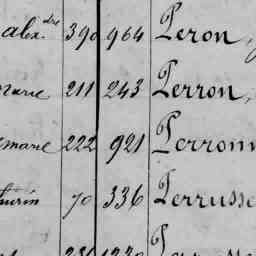 alex.dre 390 964 Peron,
marie 211 243 Perron,
emarie 222 921 Perronn
thurin 70 336 Perrusse